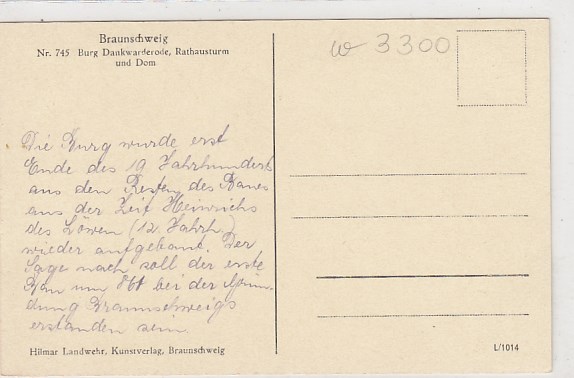 Braunschweig
Nr. 745 Burg Dankwarderode, Rathausturm
und Dom
w 3300
Die Burg wurde erst
Ende des 19 Jahrhunderts
aus den Resten des Baues
aus der Zeit Heinrichs
des Löwen (12. Jahrh.)
wieder aufgebaut. Der
Sage nach soll der erste
Bau um 861 bei der Grün-
dung Braunschweigs
erstanden sein.
Hilmar Landwehr, Kunstverlag, Braunschweig
L/1014